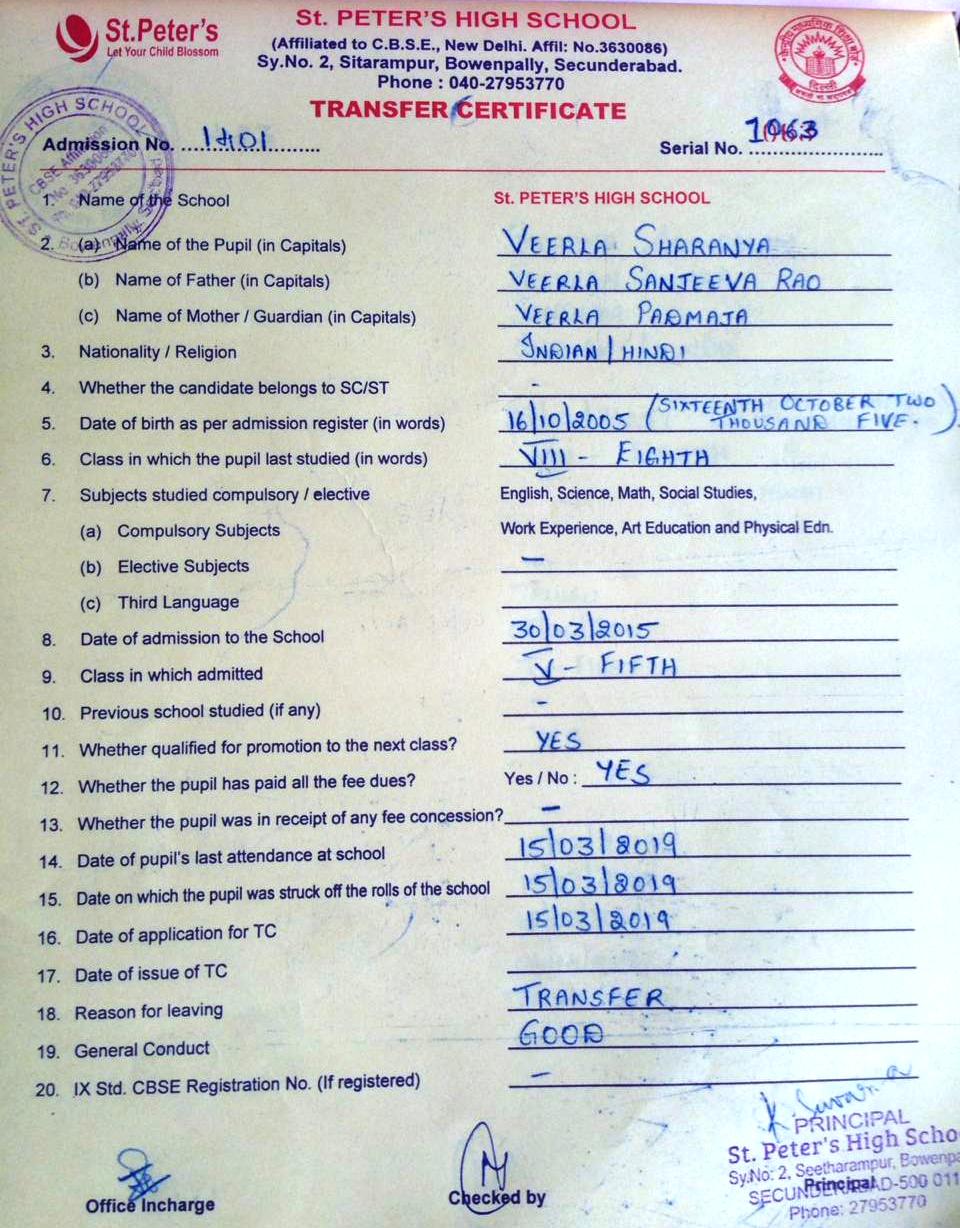 St.Peter's
Let Your Child Blossom
St. PETER'S HIGH SCHOOL
(Affiliated to C.B.S.E., New Delhi. Affil: No.3630086)
Sy.No. 2, Sitarampur, Bowenpally, Secunderabad.
Phone : 040-27953770
TRANSFER CERTIFICATE
Admission No.
Serial No. 1963
1. Name of the School St. PETER'S HIGH SCHOOL
2. (a) Name of the Pupil (in Capitals) VEERLA SHARANYA
(b) Name of Father (in Capitals) VEERLA SANJEEVA RAO
(c) Name of Mother / Guardian (in Capitals) VEERLA PADMAJA
3. Nationality / Religion INDIAN | HINDI
4. Whether the candidate belongs to SC/ST -
5. Date of birth as per admission register (in words) 16|10|2005 (SIXTEENTH OCTOBER TWO THOUSAND FIVE.)
6. Class in which the pupil last studied (in words) VIII - EIGHTH
7. Subjects studied compulsory / elective English, Science, Math, Social Studies,
(a) Compulsory Subjects Work Experience, Art Education and Physical Edn.
(b) Elective Subjects -
(c) Third Language
8. Date of admission to the School 30|03|2015
9. Class in which admitted V - FIFTH
10. Previous school studied (if any) -
11. Whether qualified for promotion to the next class? YES
12. Whether the pupil has paid all the fee dues? Yes / No : YES
13. Whether the pupil was in receipt of any fee concession? -
14. Date of pupil's last attendance at school 15|03|2019
15. Date on which the pupil was struck off the rolls of the school 15|03|2019
16. Date of application for TC 15|03|2019
17. Date of issue of TC
18. Reason for leaving TRANSFER
19. General Conduct GOOD
20. IX Std. CBSE Registration No. (If registered) -
K Suvarna
PRINCIPAL
St. Peter's High Scho
Sy.No: 2, Seetharampur, Bowenpa
Principal
SECUNDERABAD-500 011
Phone: 27953770
Office Incharge
Checked by
ST. PETER'S HIGH SCHOOL
CBSE Affiliation